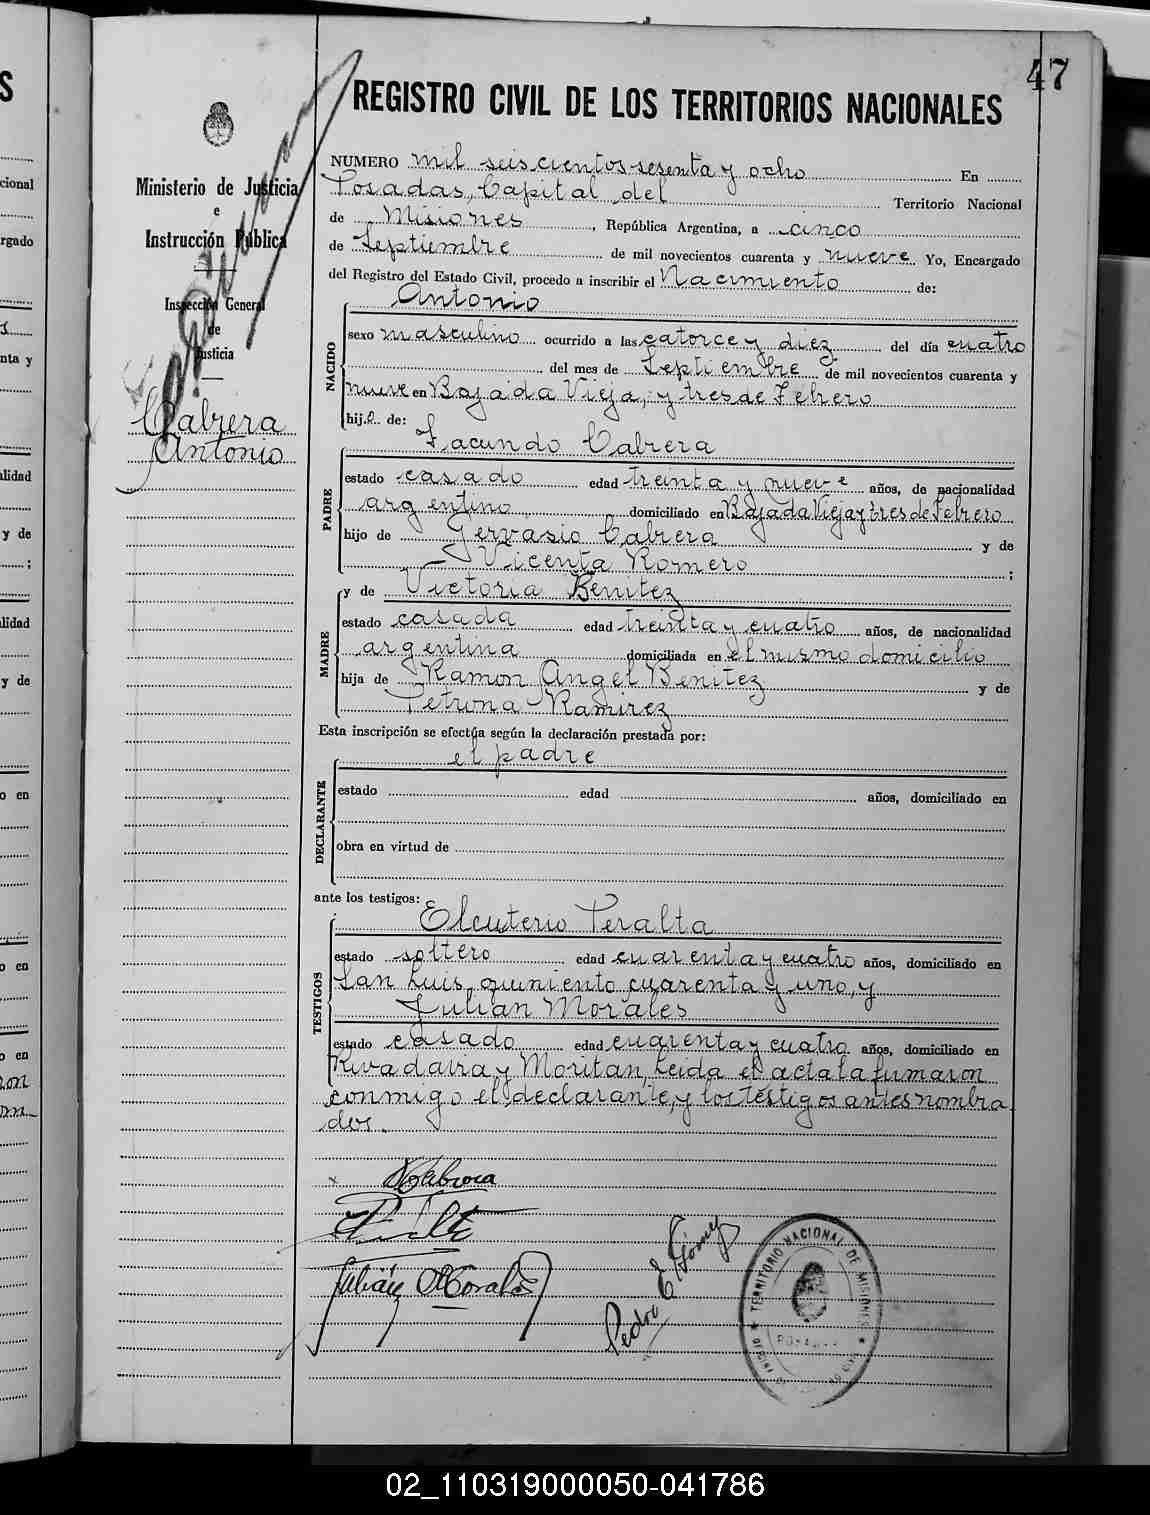 47
REGISTRO CIVIL DE LOS TERRITORIOS NACIONALES
Ministerio de Justicia
e
Instrucción Pública
Inspección General
de
Justicia
Cabrera
Antonio
NUMERO mil seiscientos sesenta y ocho En
Posadas, Capital del Territorio Nacional
de Misiones, República Argentina, a cinco
de Septiembre de mil novecientos cuarenta y nueve Yo, Encargado
del Registro del Estado Civil, procedo a inscribir el Nacimiento de:
Antonio
NACIDO
sexo masculino ocurrido a las catorce y diez del día cuatro
del mes de Septiembre de mil novecientos cuarenta y
nueve en Bajada Vieja, y tres de Febrero
hijo de:
Facundo Cabrera
PADRE
estado casado edad treinta y nueve años, de nacionalidad
argentino domiciliado en Bajada Vieja y tres de Febrero
hijo de Gervasio Cabrera y de
Vicenta Romero ;
y de Victoria Benitez
MADRE
estado casada edad treinta y cuatro años, de nacionalidad
argentina domiciliada en el mismo domicilio
hija de Ramon Angel Benitez y de
Petrona Ramirez
Esta inscripción se efectúa según la declaración prestada por:
el padre
DECLARANTE
estado edad años, domiciliado en
obra en virtud de
ante los testigos:
Eleuterio Peralta
TESTIGOS
estado soltero edad cuarenta y cuatro años, domiciliado en
San Luis, quiniento cuarenta y uno, y
Julian Morales
estado casado edad cuarenta y cuatro años, domiciliado en
Rivadavia y Moritan, Leida el acta la fumaron
conmigo el declarante, y los testigos antes nombra
dos.
Julián Morales
Pedro E Gómez
TERRITORIO NACIONAL DE MISIONES
02_110319000050-041786